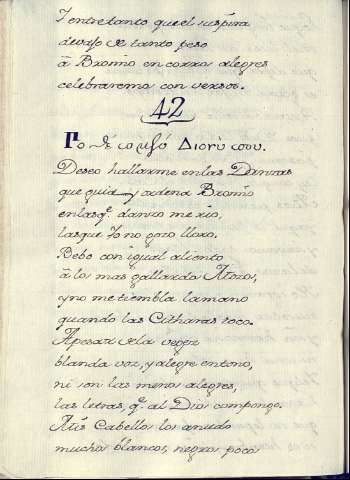 Y entretanto que el suspira
devajo de tanto peso
à Bromio en coros alegres
celebraremos con versos.
42
Deseo hallarme en las Danzas
que guia y ordena Bromio
en las q.^e danzo me rio,
las que Yo no gozo lloro.
Bebo con igual aliento
à los mas gallardos Mozos,
y no me tiembla la mano
quando las Citharas toco.
Apesar de la vegez
blanda voz, y alegre entono,
ni son las menos alegres,
las letras, q.^e al Dios compongo.
Mis Cabellos los anudo
muchos blancos, negros pocos